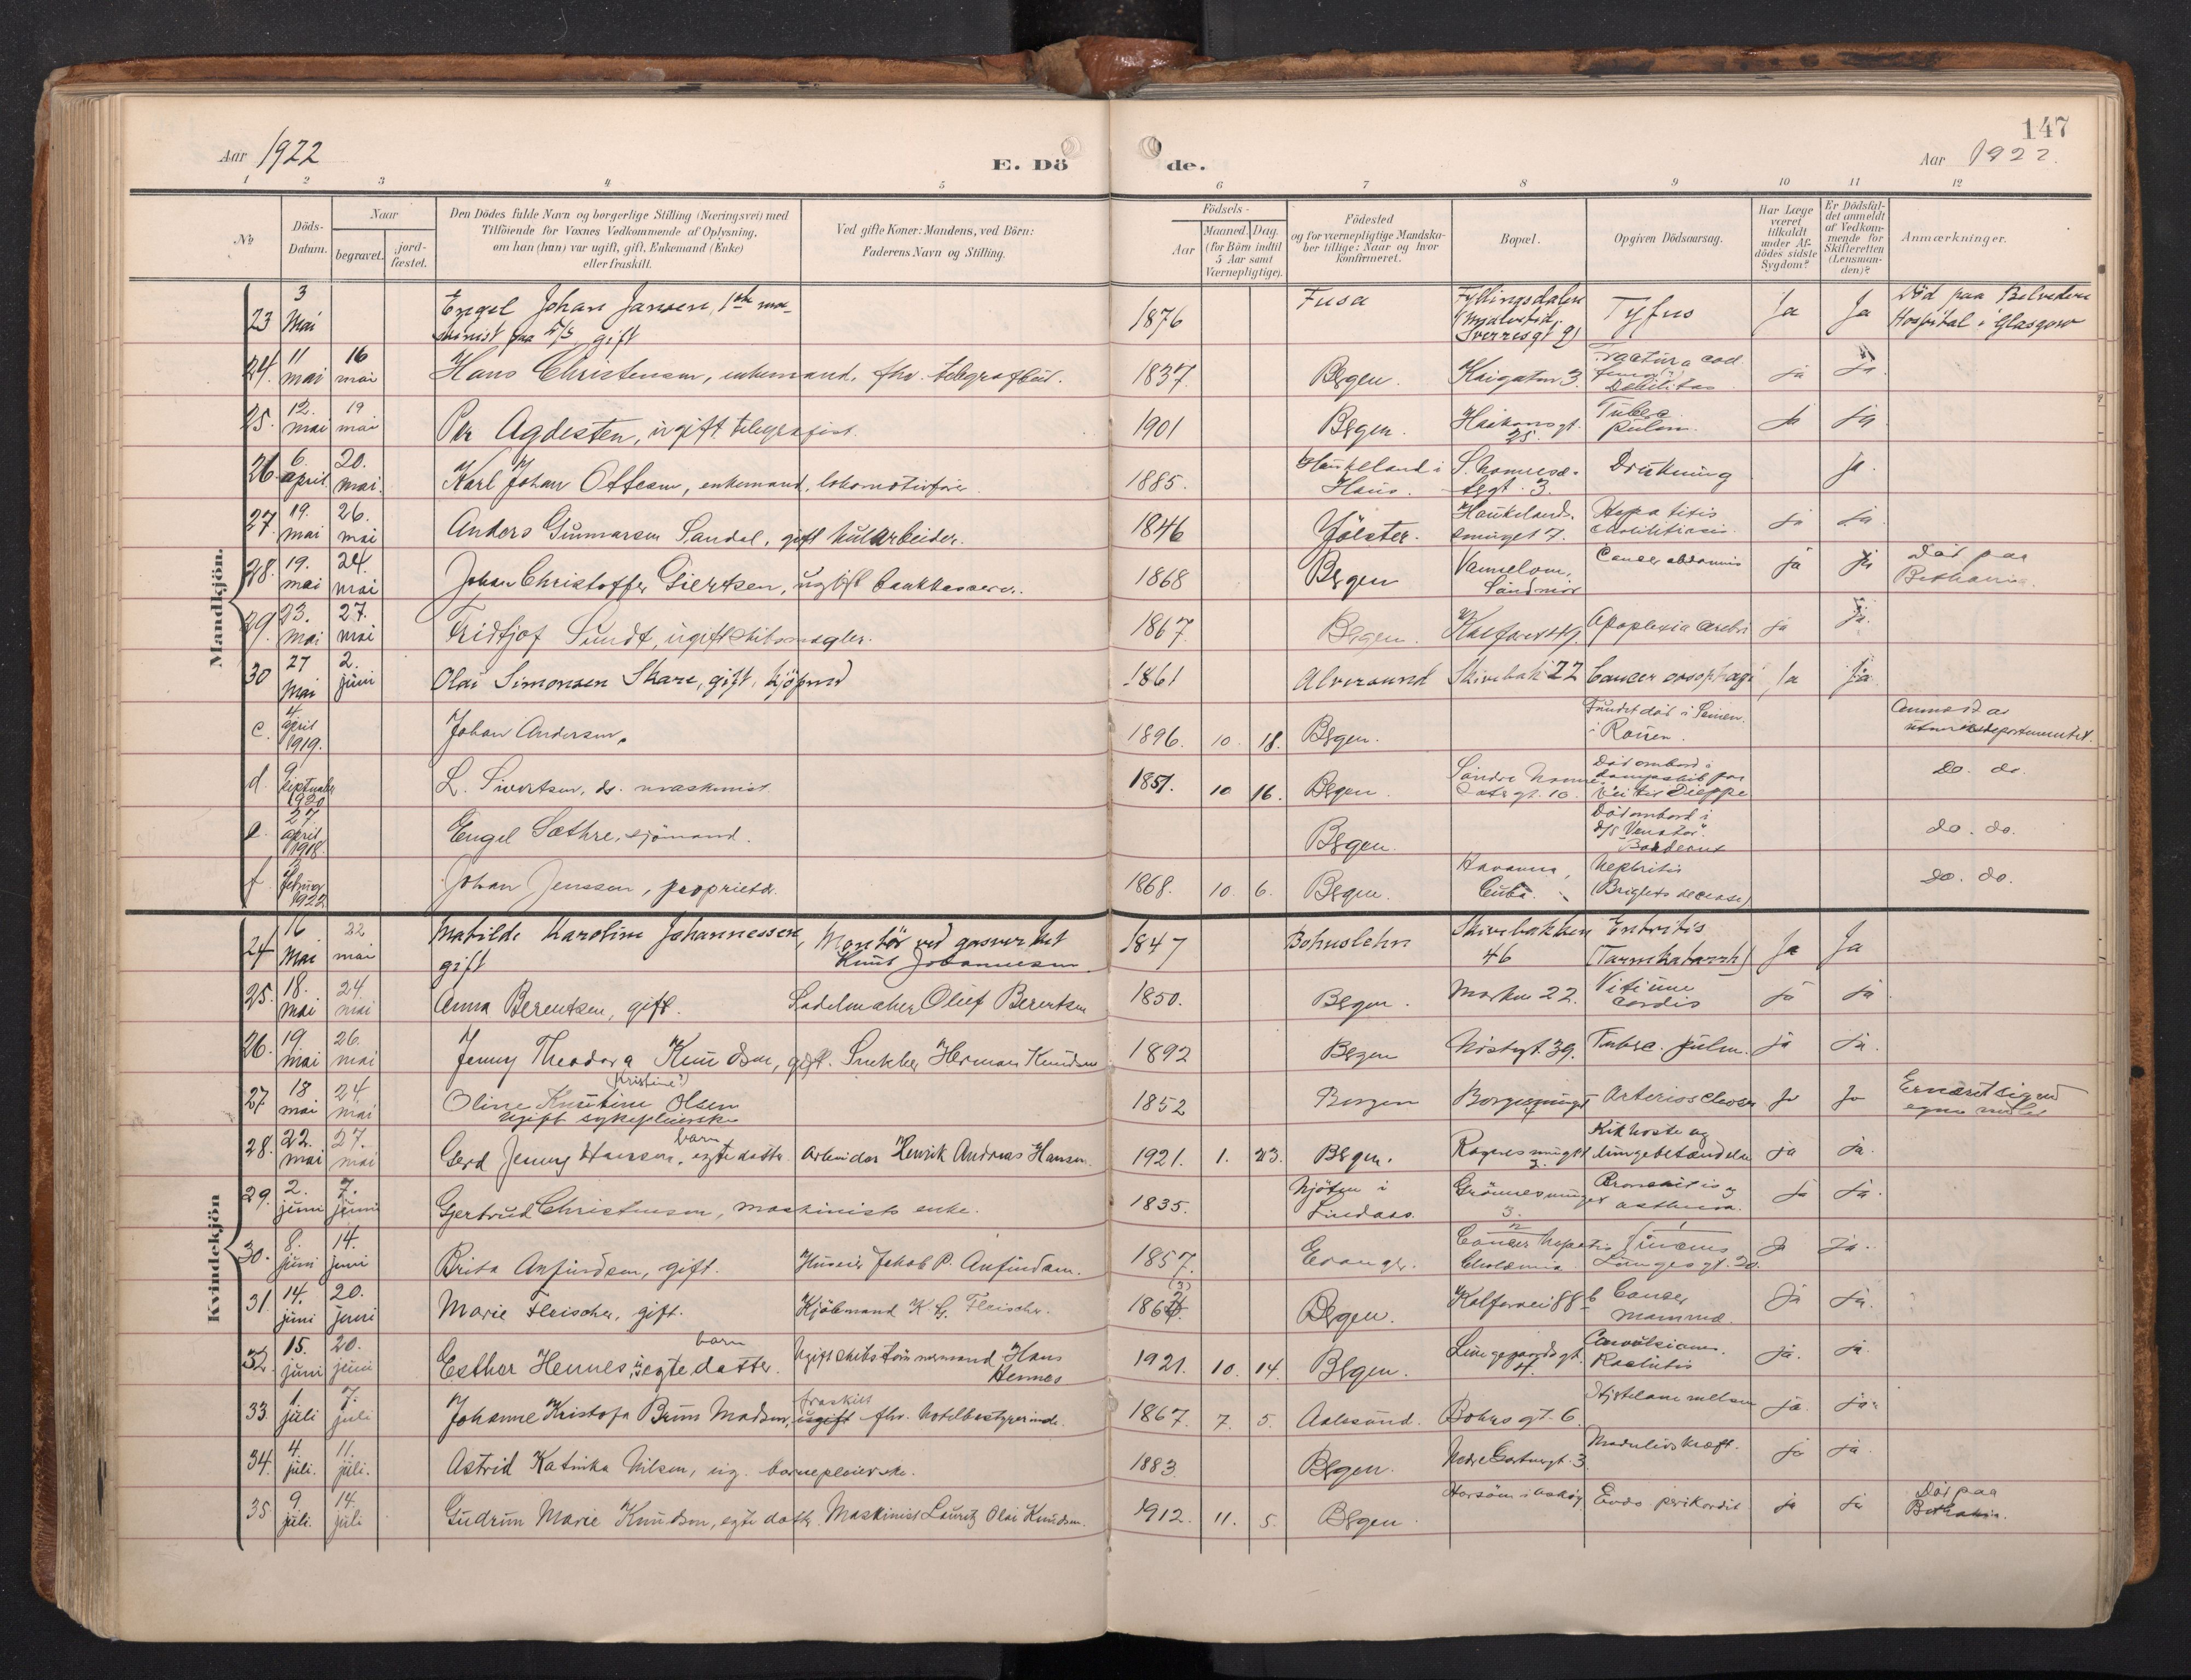 147
Aar 1922
E. Dö
de.
Aar 1922.
1 2 3 4 5 6 7 8 9 10 11 12
No
Döds-
Datum.
Naar
begravet.
jord-
fæstet.
Den Dödes fulde Navn og borgerlige Stilling (Næringsvei) med
Tilföiende for Voxnes Vedkommende af Oplysning,
om han (hun) var ugift, gift, Enkemand (Enke)
eller fraskilt.
Ved gifte Koner: Mandens, ved Börn:
Faderens Navn og Stilling.
Födsels-
Aar
Maaned.
Dag.
(for Börn indtil
5 Aar samt
Værnepligtige).
Födested
og for værnepligtige Mandska-
ber tillige: Naar og hvor
konfirmeret.
Bopæl.
Opgiven Dödsaarsag.
Har Læge
været
tilkaldt
under Af-
dödes sidste
Sygdom?
Er Dödsfal-
det anmeldt
af Vedkom-
mende for
Skifteretten
(Lensman-
den)?
Anmærkninger.
Mandkjön.
23 3 Mai Engel Johan Jansen, 1ste ma-
skinist paa S/S, gift 1876 Fusa Fyllingsdalen
Sverresgt 9) Tyfus Ja Ja Död paa Belvedere
Hospital i Glasgow
24. 11 mai 16 mai Hans Christensen, enkemand, fhv. telegrafbud. 1837. Bergen. Kaigaten 3. Fractura
Debilitas ja ja
25. 12. mai 19 mai Per Agdesten, ugift telegrafist. 1901 Bergen. Haakonsgt.
25. Tuberc.
pulm. ja ja
26. 6. april 20. mai. Karl Johan Ottesen, enkemand, lokomotivförer 1885. Haukeland i
Haus. 3. Drukning ja.
27. 19. mai 26. mai Anders Gunnarsen Sandal, gift 1846 Jölster. Haukelands-
smuget 7. Hepatitis
ja ja
28. 19. mai 24. mai Johan Christoffer Giertsen, ugift bankkasserer. 1868 Bergen
Söndmör Cancer abdominis ja ja Död paa
Bethania.
29. 23. mai 27. mai Fridtjof Sundt, ugift skibsmægler. 1867. Bergen. Apoplexia cerebri ja ja.
30 27 Mai 2. juni Olai Simonsen Skare, gift, kjöpmd 1861 Alversund Skivebak 22 Cancer oesophagi Ja Ja
c. 4. april 1919. Johan Andersen. 1896. 10. 18. Bergen. Fundet död i Seinen
i Rouen. Anmeldt av
utenriksdepartementet.
d. 9 september 1920 L. Sivertsen, ds. maskinist. 1851. 10 16. Bergen. Söndre
gt. 10. Död ombord i
dampskib paa
vei til Dieppe do. do.
e. 27. april 1918. Engel Sæthre, sjömand. Bergen. Död ombord i
d/s "Venator".
Bordeaux do. do.
f. 2 februar 1922. Johan Jenssen, proprietær. 1868. 10. 6. Bergen. Havanna,
Cuba. Nephritis
(Brights decease) do. do.
Kvindekjön
24 16 Mai 22 mai Mathilde Karoline Johannessen,
gift Montör ved gasverket
Knut Johannesen 1847 Bohuslehn Skivebakken
46 Entritis
(Tarmkatarrh) Ja Ja
25. 18. mai 24. mai Anna Berentsen, gift. Sadelmaker Oluf Berentsen 1850. Bergen. Marken 22. Vitium
cordis ja ja
26. 19. mai 26. mai Jenny Theodora Knudsen, gift. Snekker Herman Knudsen 1892 Bergen Nöstegt. 39. Tuberc. pulm. ja ja.
27 18 mai 24. mai (Kristine?)
Oline Kristine Olsen
ugift sykepleierske 1852 Bergen Arteriosclerose Ja Ja
28. 22. mai 27. mai barn
Gerd Jenny Hansen, egte datter. Arbeider Henrik Andreas Hansen. 1921. 1. 23. Bergen.
3. Kikhoste og
lungebetændelse ja ja.
29. 2. juni 7. juni Gertrud Christensen, maskinists enke. 1835. i
Lindaas. Grönnesmuget
3. Bronchitis og
asthma. ja ja.
30. 8. juni 14. juni Brita Anfindsen, gift. Huseier Jakob P. Anfindsen. 1857. Evanger. Cancer hepatis
Cholæmia.
Lungesgt. 20. Ja Ja.
31. 14. juni 20. juni Marie Fleischer, gift. Kjöbmand K. G. Fleischer. (3)
186 Bergen. Kalfarvei 88 b Cancer
mammæ. Ja ja.
32. 15. juni 20. juni barn
Esther Hennes, uegte datter. Ugift skibstömmermand Hans
Hennes 1921. 10. 14. Bergen. Lungegaardsgt.
4. Convulsiones.
Rachitis ja. ja.
33. 1. juli 7. juli Johanne Kristofa Brun Madsen, fraskilt
ugift fhv. hotelbestyrerinde. 1867. 7. 5. Aalesund. Bohrsgt. 6. ja. ja.
34. 4. juli. 11. juli. Astrid Katinka Nilsen, ug. barnepleierske. 1883. Bergen. 3. ja ja.
35. 9. juli. 14. juli Gudrun Marie Knudsen, egte datter. Maskinist Lauritz Olai Knudsen. 1912. 11. 5. Bergen. Endo perikardit ja ja Död paa
Bethania.